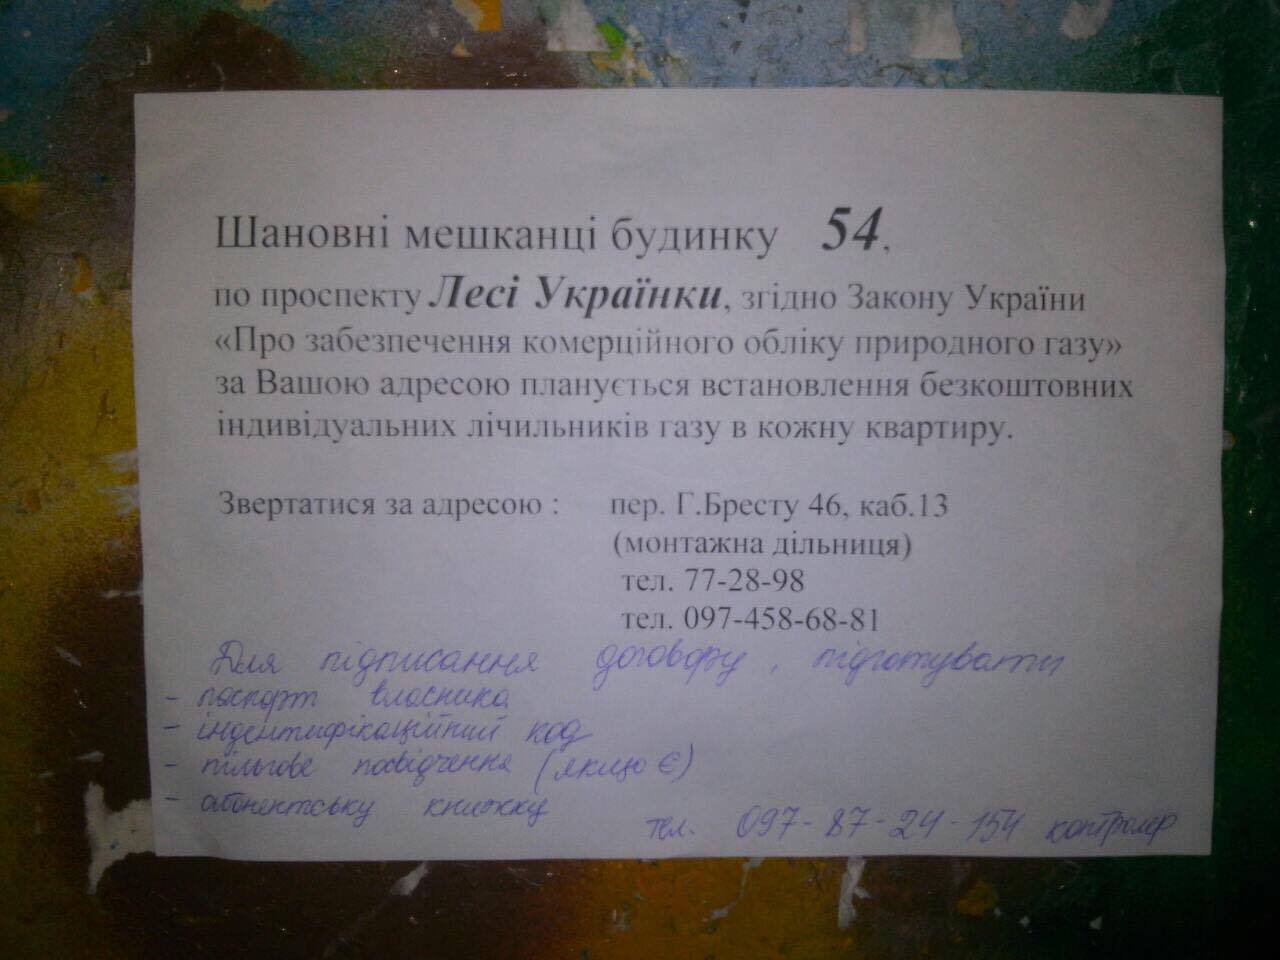 Шановні мешканці будинку 54,
по проспекту Лесі Українки, згідно Закону України
«Про забезпечення комерційного обліку природного газу»
за Вашою адресою планується встановлення безкоштовних
індивідуальних лічильників газу в кожну квартиру.
Звертатися за адресою : пер. Г.Бресту 46, каб.13
(монтажна дільниця)
тел. 77-28-98
тел. 097-458-68-81
Для підписання договору, підготувати
- паспорт власника
- індентифікаційний код
- пільгове посвідчення (якщо є)
- абонентську книжку
тел. 097-87-24-154 контролер